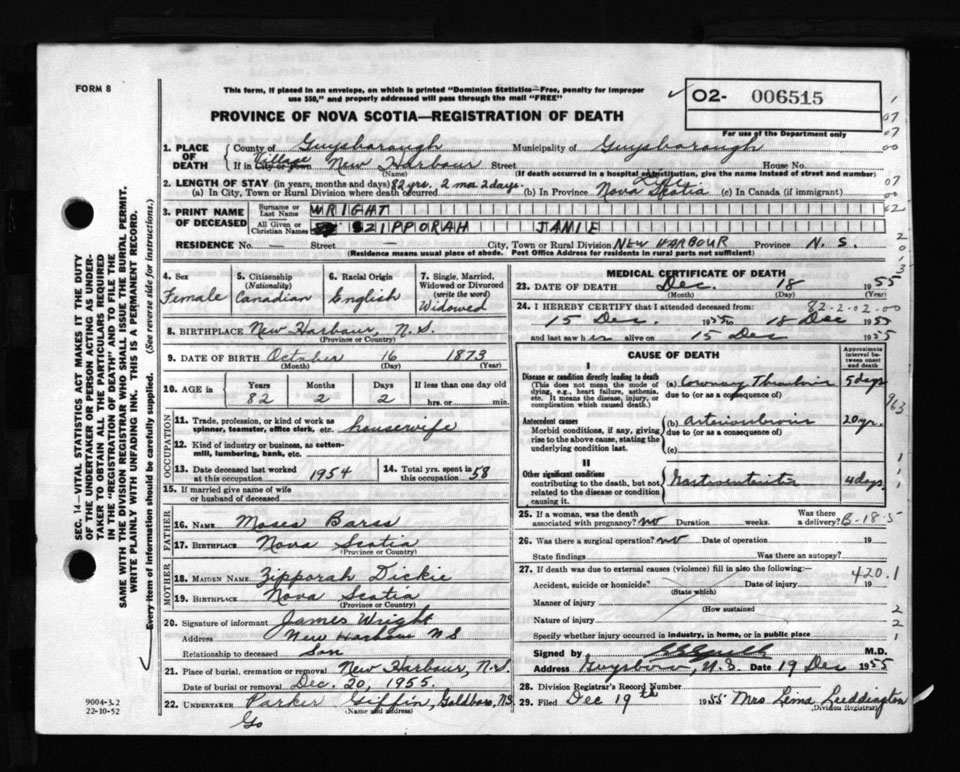 FORM 8
This form, if placed in an envelope, on which is printed "Dominion Statistics—Free, penalty for improper
use $50," and properly addressed will pass through the mail "FREE"
✓ 02- 006515
For use of the Department only
PROVINCE OF NOVA SCOTIA—REGISTRATION OF DEATH
1. PLACE OF DEATH
County of Guysborough Municipality of Guysborough
If in City or town Village New Harbour Street House No.
(Name) (If death occurred in a hospital or institution, give the name instead of street and number)
2. LENGTH OF STAY (in years, months and days) 82 yrs. 2 mo 2 days. Life
(a) In City, Town or Rural Division where death occurred (b) In Province Nova Scotia (c) In Canada (if immigrant)
3. PRINT NAME OF DECEASED
Surname or Last Name WRIGHT
All Given or Christian Names ZIPPORAH JAMIE
RESIDENCE No. — Street — City, Town or Rural Division NEW HARBOUR Province N. S.
(Residence means usual place of abode. Post Office Address for residents in rural parts not sufficient)
4. Sex
Female
5. Citizenship
(Nationality)
Canadian
6. Racial Origin
English
7. Single, Married, Widowed or Divorced
(write the word)
Widowed
8. BIRTHPLACE New Harbour, N.S.
(Province or Country)
9. DATE OF BIRTH October 16 1873
(Month) (Day) (Year)
10. AGE in Years Months Days If less than one day old
82 2 2 hrs. or min.
OCCUPATION
11. Trade, profession, or kind of work as
spinner, teamster, office clerk, etc. housewife
12. Kind of industry or business, as cotton-
mill, lumbering, bank, etc.
13. Date deceased last worked
at this occupation 1954
14. Total yrs. spent in
this occupation 58
15. If married give name of wife
or husband of deceased
FATHER
16. NAME Moses Barss
17. BIRTHPLACE Nova Scotia
(Province or Country)
MOTHER
18. MAIDEN NAME Zipporah Dickie
19. BIRTHPLACE Nova Scotia
(Province or Country)
20. Signature of informant James Wright
Address New Harbour NS
Relationship to deceased Son
21. Place of burial, cremation or removal New Harbour, N.S.
Date of burial or removal Dec. 20, 1955.
22. UNDERTAKER Parker Giffin, Goldboro, NS.
(Name and address)
MEDICAL CERTIFICATE OF DEATH
23. DATE OF DEATH Dec. 18 1955
(Month) (Day) (Year)
82-2-02-00
24. I HEREBY CERTIFY that I attended deceased from:
15 Dec. 1955 to 18 Dec 1955
and last saw her alive on 15 Dec 1955
CAUSE OF DEATH
Approximate interval between onset and death
I
Disease or condition directly leading to death
(This does not mean the mode of
dying, e.g., heart failure, asthenia,
etc. It means the disease, injury, or
complication which caused death.)
(a) Coronary Thrombosis 5 days
due to (or as a consequence of)
963
Antecedent causes
Morbid conditions, if any, giving
rise to the above cause, stating the
underlying condition last.
(b) Arteriosclerosis 20 yr.
due to (or as a consequence of)
(c)
II
Other significant conditions
contributing to the death, but not
related to the disease or condition
causing it.
Gastroenteritis 4 days
25. If a woman, was the death
associated with pregnancy? no Duration weeks. Was there
a delivery? B-18-5
26. Was there a surgical operation? no Date of operation 19
State findings Was there an autopsy?
27. If death was due to external causes (violence) fill in also the following:— 420.1
Accident, suicide or homicide? Date of injury 19
(State which)
Manner of injury
(How sustained
Nature of injury
Specify whether injury occurred in industry, in home, or in public place
Signed by M.D.
Address Guysboro, N.S. Date 19 Dec 1955
28. Division Registrar's Record Number
29. Filed Dec 19th 1955 Mrs Lena Luddington
(Division Registrar)
SEC. 14—VITAL STATISTICS ACT MAKES IT THE DUTY
OF THE UNDERTAKER OR PERSON ACTING AS UNDER-
TAKER TO OBTAIN ALL THE PARTICULARS REQUIRED
IN THE "REGISTRATION OF DEATH" AND TO FILE THE
SAME WITH THE DIVISION REGISTRAR WHO SHALL ISSUE THE BURIAL PERMIT.
WRITE PLAINLY WITH UNFADING INK. THIS IS A PERMANENT RECORD.
Every item of information should be carefully supplied. (See reverse side for instructions.)
9004-3.2
22-10-52